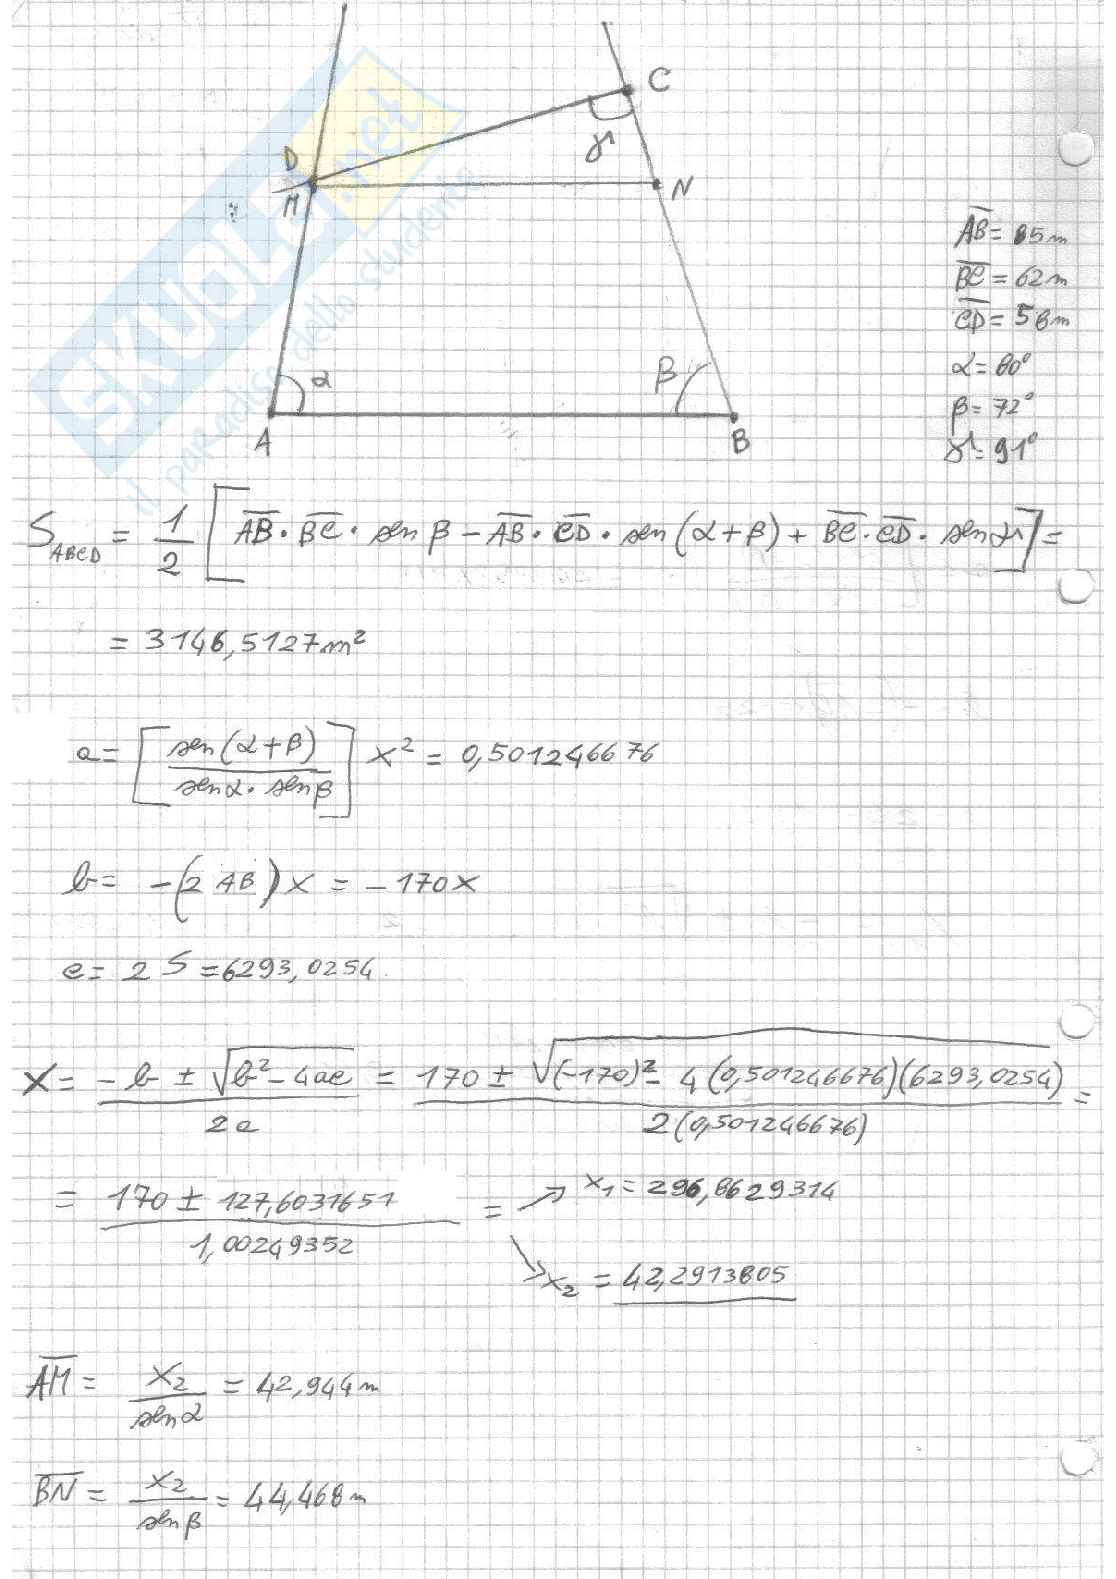 C
γ
D
M
N
A̅B̅ = 85m
B̅C̅ = 62m
C̅D̅ = 58m
α = 80°
β = 72°
γ = 91°
α
β
A
B
SKUOLA.net
il paradiso dello studente
S_ABCD = 1/2 [A̅B̅ · B̅C̅ · sen β - A̅B̅ · C̅D̅ · sen (α+β) + B̅C̅ · C̅D̅ · sen γ] =
= 3146,5127 m²
a = [sen(α+β) / senα · senβ] x² = 0,501246676
b = -(2 AB) x = -170x
c = 2 S = 6293,0254
X = -b ± √(b² - 4ac) / 2a = 170 ± √((-170)² - 4(0,501246676)(6293,0254)) / 2(0,501246676) =
= 170 ± 127,6031651 / 1,00249352 = → x₁ = 296,8629314
↘ x₂ = 42,2913805
A̅M̅ = x₂ / senα = 42,944 m
B̅N̅ = x₂ / senβ = 44,468 m